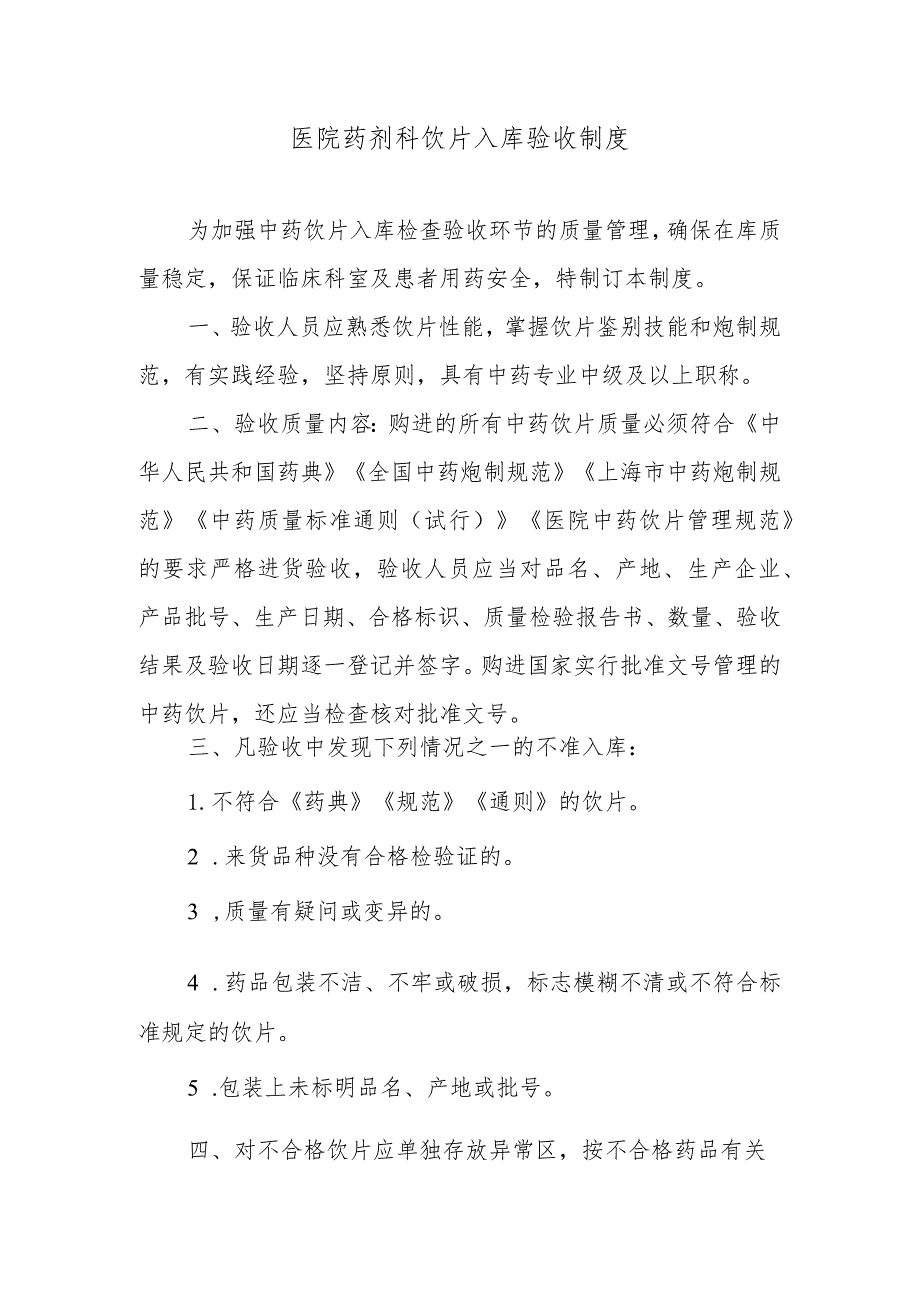 医院药剂科饮片入库验收制度
为加强中药饮片入库检查验收环节的质量管理,确保在库质
量稳定，保证临床科室及患者用药安全，特制订本制度。
一、验收人员应熟悉饮片性能，掌握饮片鉴别技能和炮制规
范，有实践经验，坚持原则，具有中药专业中级及以上职称。
二、验收质量内容：购进的所有中药饮片质量必须符合《中
华人民共和国药典》《全国中药炮制规范》《上海市中药炮制规
范》《中药质量标准通则（试行）》《医院中药饮片管理规范》
的要求严格进货验收，验收人员应当对品名、产地、生产企业、
产品批号、生产日期、合格标识、质量检验报告书、数量、验收
结果及验收日期逐一登记并签字。购进国家实行批准文号管理的
中药饮片，还应当检查核对批准文号。
三、凡验收中发现下列情况之一的不准入库：
1.不符合《药典》《规范》《通则》的饮片。
2 .来货品种没有合格检验证的。
3 ,质量有疑问或变异的。
4 .药品包装不洁、不牢或破损，标志模糊不清或不符合标
准规定的饮片。
5 .包装上未标明品名、产地或批号。
四、对不合格饮片应单独存放异常区，按不合格药品有关